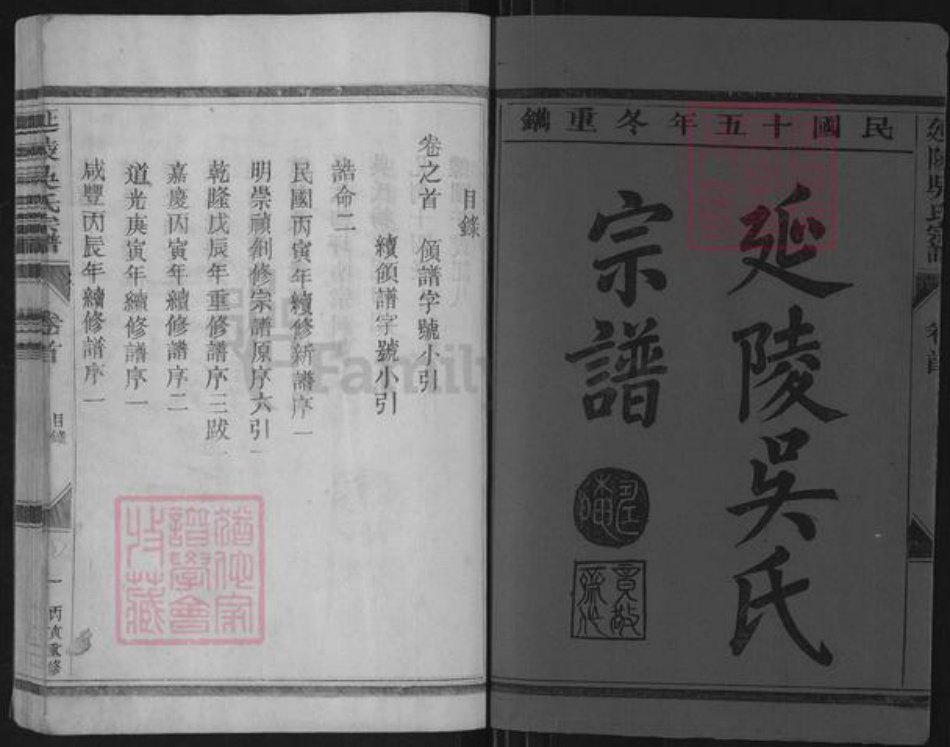 民國十五年冬重鐫
延陵吳氏
宗譜
延陵吳氏宗譜
卷首
目錄
卷之首 頒譜字號小引
續頒譜字號小引
誥命二
民國丙寅年續修新譜序一
明崇禎創修宗譜原序六引一
乾隆戊辰年重修譜序三跋一
嘉慶丙寅年續修譜序二
道光庚寅年續修譜序一
咸豐丙辰年續修譜序一
延陵吳氏宗譜
卷首
目錄
一
丙寅重修
譜學會
收藏
Famil